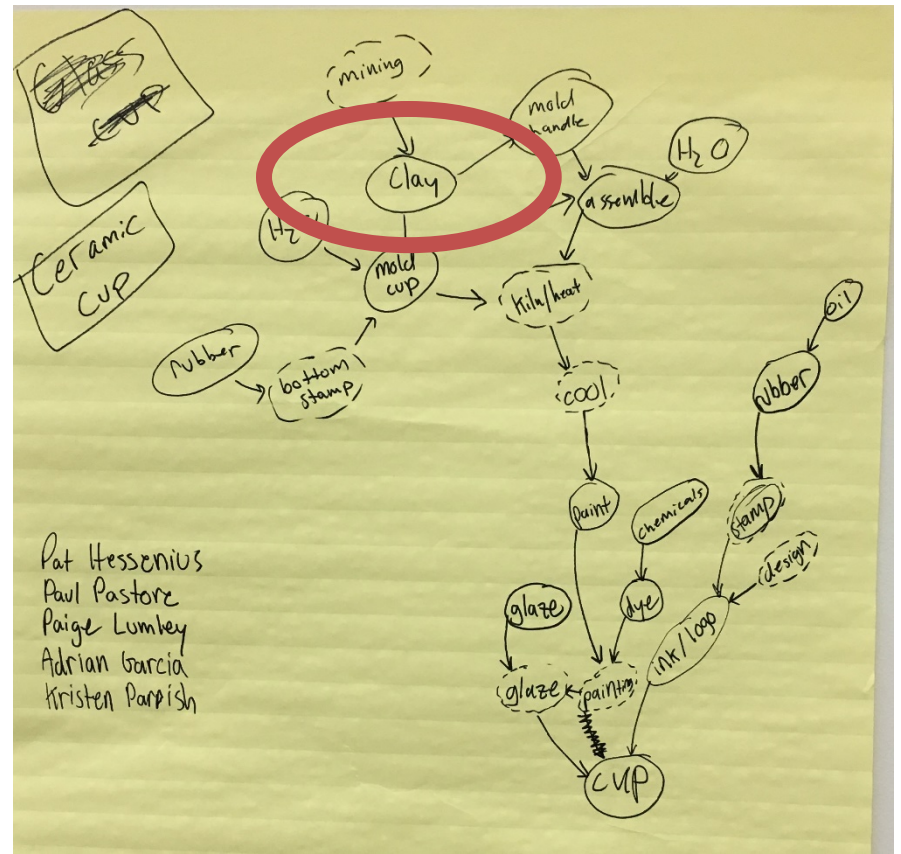 Glass
cup
Ceramic
cup
mining
clay
mold
handle
H2O
assemble
H2O
mold
cup
Kiln/heat
rubber
bottom
stamp
cool
oil
rubber
stamp
design
paint
chemicals
dye
ink/logo
glaze
glaze
painting
cup
Pat Hessenius
Paul Pastore
Paige Lumley
Adrian Garcia
Kristen Parpish